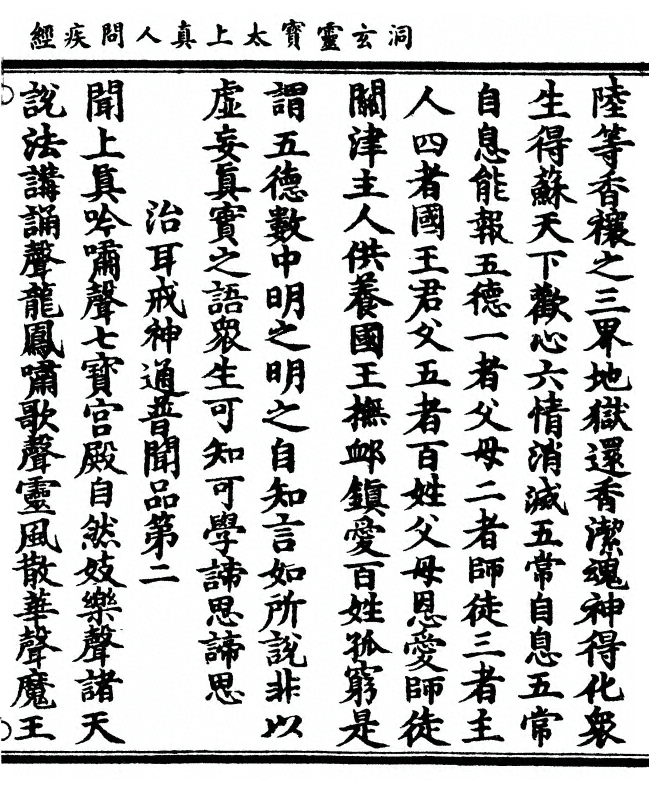 洞玄靈寶太上真人問疾經
陸等香穰之三界地獄還香潔魂神得化衆
生得蘇天下歡心六情消滅五常自息五常
自息能報五德一者父母二者師徒三者主
人四者國王君父五者百姓父母恩愛師徒
關津主人供養國王撫卹鎮愛百姓孤窮是
謂五德數中明之明之自知言如所說非以
虛妄真寶之語衆生可知可學諦思諦思
治耳戒神通普聞品第二
聞上真吟嘯聲七寶宮殿自然妓樂聲諸天
說法講誦聲龍鳳嘯歌聲靈風散華聲魔王